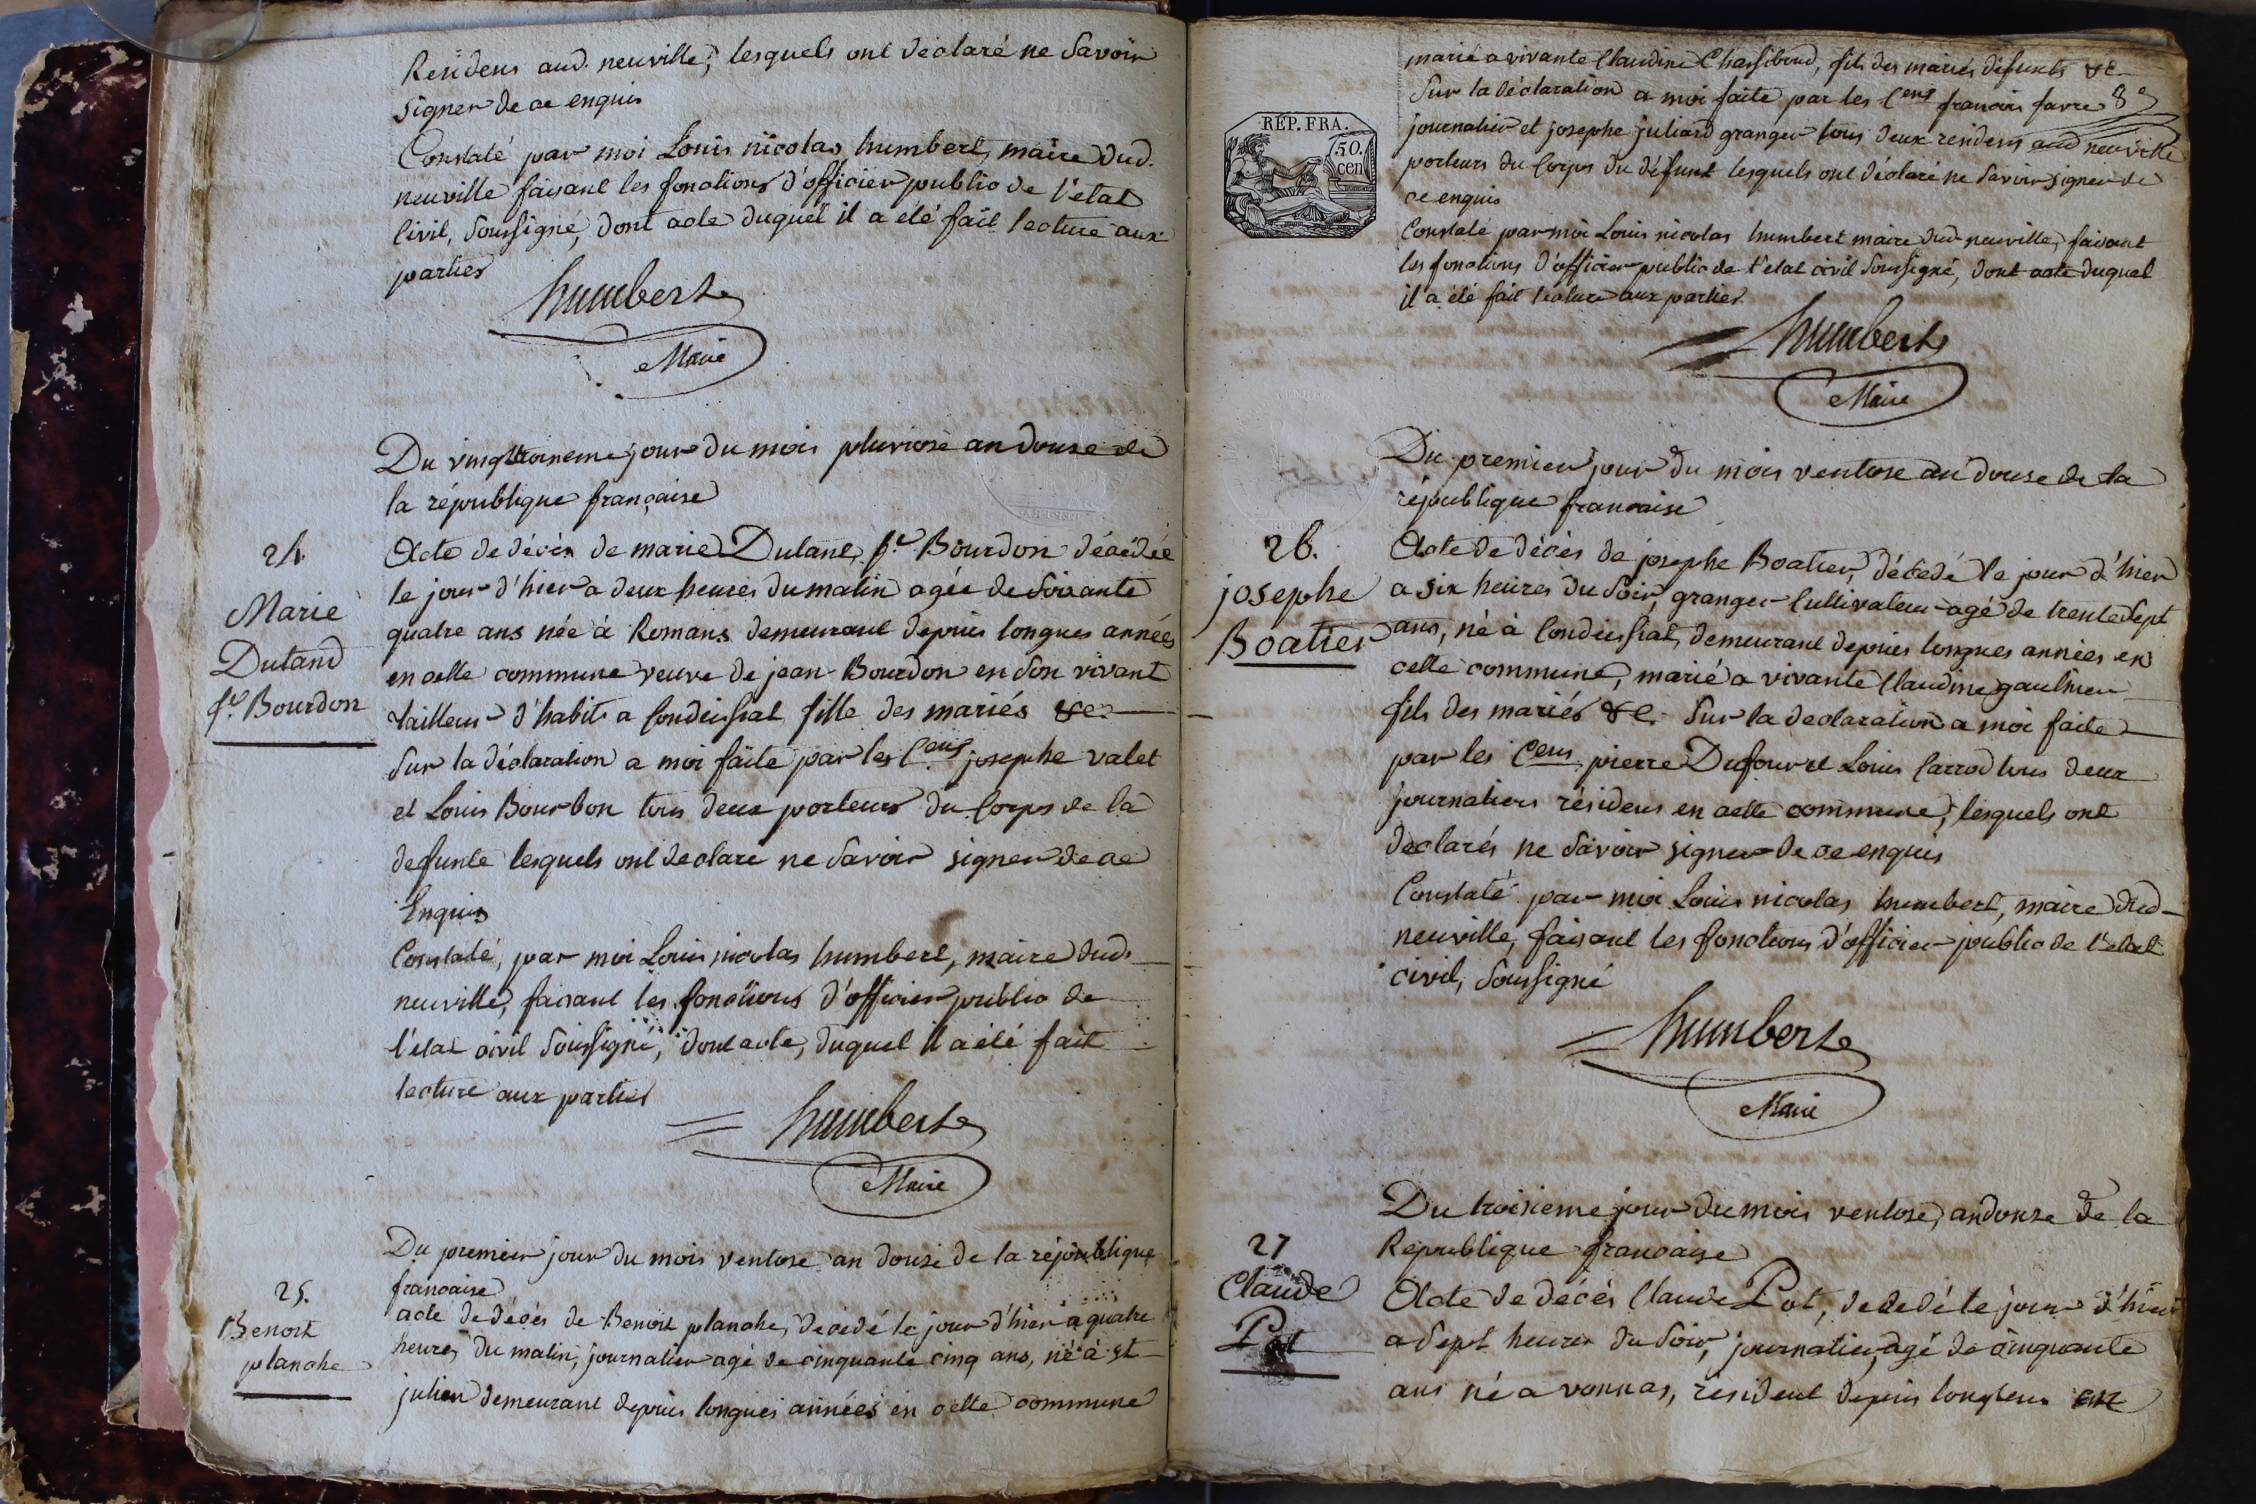 Residens aud. neuville, lesquels ont déclaré ne savoir
signer de ce enquis
Constaté par moi Louis nicolas humbert, maire dud.
neuville faisant les fonctions d'officier public de l'état
Civil, soussigné, dont acte duquel il a été fait lecture aux
parties
humbert
Maire
Du vingt troisieme jour du mois pluviose an douze de
la république française
24
Marie
Dutand
f.e Bourdon
Acte de décès de marie Dutant, f.e Bourdon décédée
le jour d'hier a deux heures du matin agée de soixante
quatre ans née à Romans demeurant depuis longues années
en cette commune veuve de jean Bourdon en son vivant
tailleur d'habits a Condeissiat fille des mariés &c.
Sur la déclaration a moi faite par les Cens josephe valet
et Louis Bourbon tous deux porteurs du Corps de la
defunte lesquels ont declare ne savoir signer de ce
Enquis
Constaté, par moi Louis nicolas humbert, maire dud.
neuville, faisant les fonctions d'officier public de
l'etat civil soussigné, dont acte, duquel il a été fait
lecture aux parties
humbert
Maire
Du premier jour du mois ventose an douze de la république
francaise
25.
Benoit
planche
acte de décès de Benoit planche, décédé le jour d'hier a quatre
heures du matin, journalier agé de cinquante cinq ans, né à st
julien demeurant depuis longues années en cette commune
REP. FRA.
50.
cen
marié a vivante Claudine Chassiboud, fils des mariés défunts &c
Sur la déclaration a moi faite par les Cens francois favre
journalier et josephe juliard granger tous deux residens aud neuville
porteurs du Corps du défunt lesquels ont déclaré ne savoir signer de
ce enquis
Constaté par moi Louis nicolas humbert maire dud neuville, faisant
les fonctions d'officier public de l'etat civil soussigné, dont acte duquel
il a été fait lecture aux parties.
humbert
Maire
Du premier jour du mois ventose an douze de la
république francaise
26.
josephe
Boatier
Acte de décès de josephe Boatier, décédé le jour d'hier
a six heures du soir, granger Cultivateur agé de trente sept
ans, né à Condeissiat, demeurant depuis longues années en
cette commune, marié a vivante Claudine gauthier
fils des mariés &c. Sur la declaration a moi faite
par les Cens pierre Dufour et Louis Carrod tous deux
journaliers résidens en cette commune, lesquels ont
declarés ne savoir signer de ce enquis
Constaté par moi Louis nicolas humbert, maire dud
neuville, faisant les fonctions d'officier public de l'etat
civil, soussigné
humbert
Maire
Du troisieme jour du mois ventose, an douze de la
Republique francaise
27
Claude
Pot
Acte de décès Claude Pot, decedé le jour d'hier
a sept heures du soir, journalier, agé de cinquante
ans né a vonnas, resident depuis longtems en